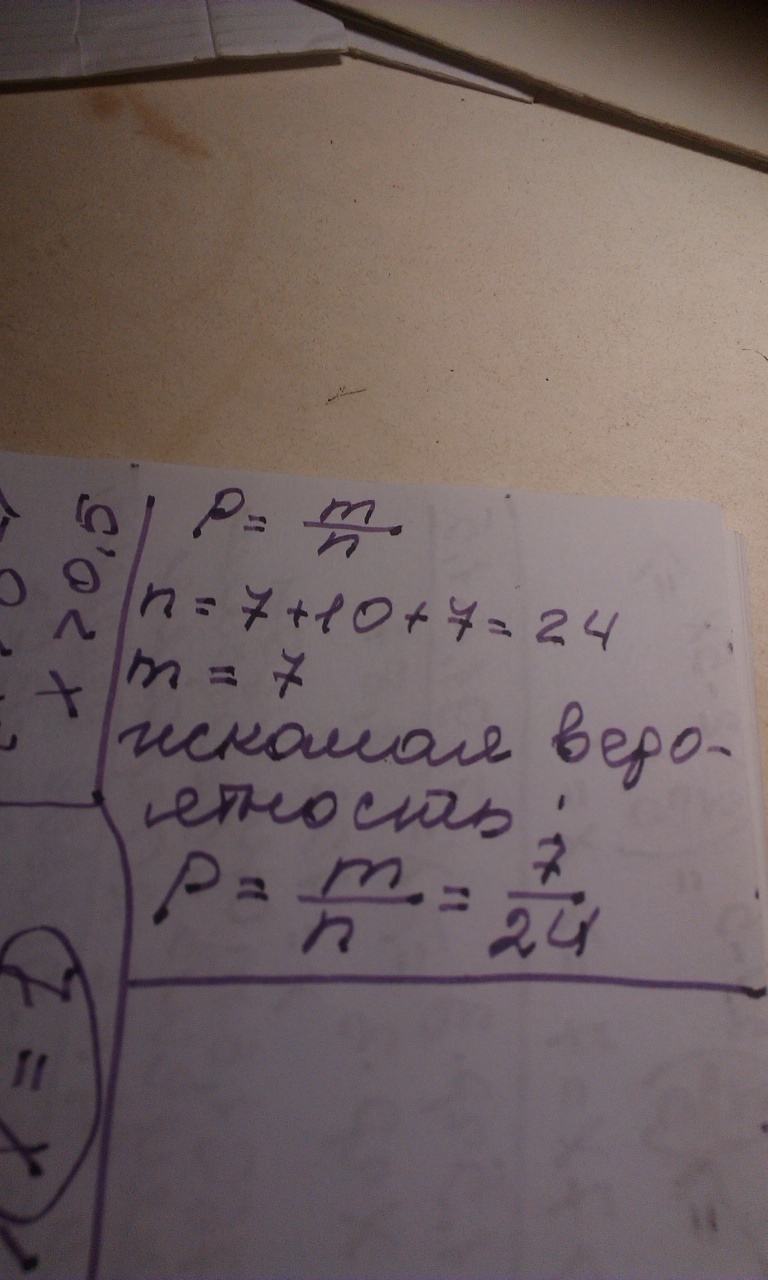 P = m/n
n = 7+10+7 = 24
m = 7
искомая веро-
ятность:
P = m/n = 7/24
x > 0,5
x = 2